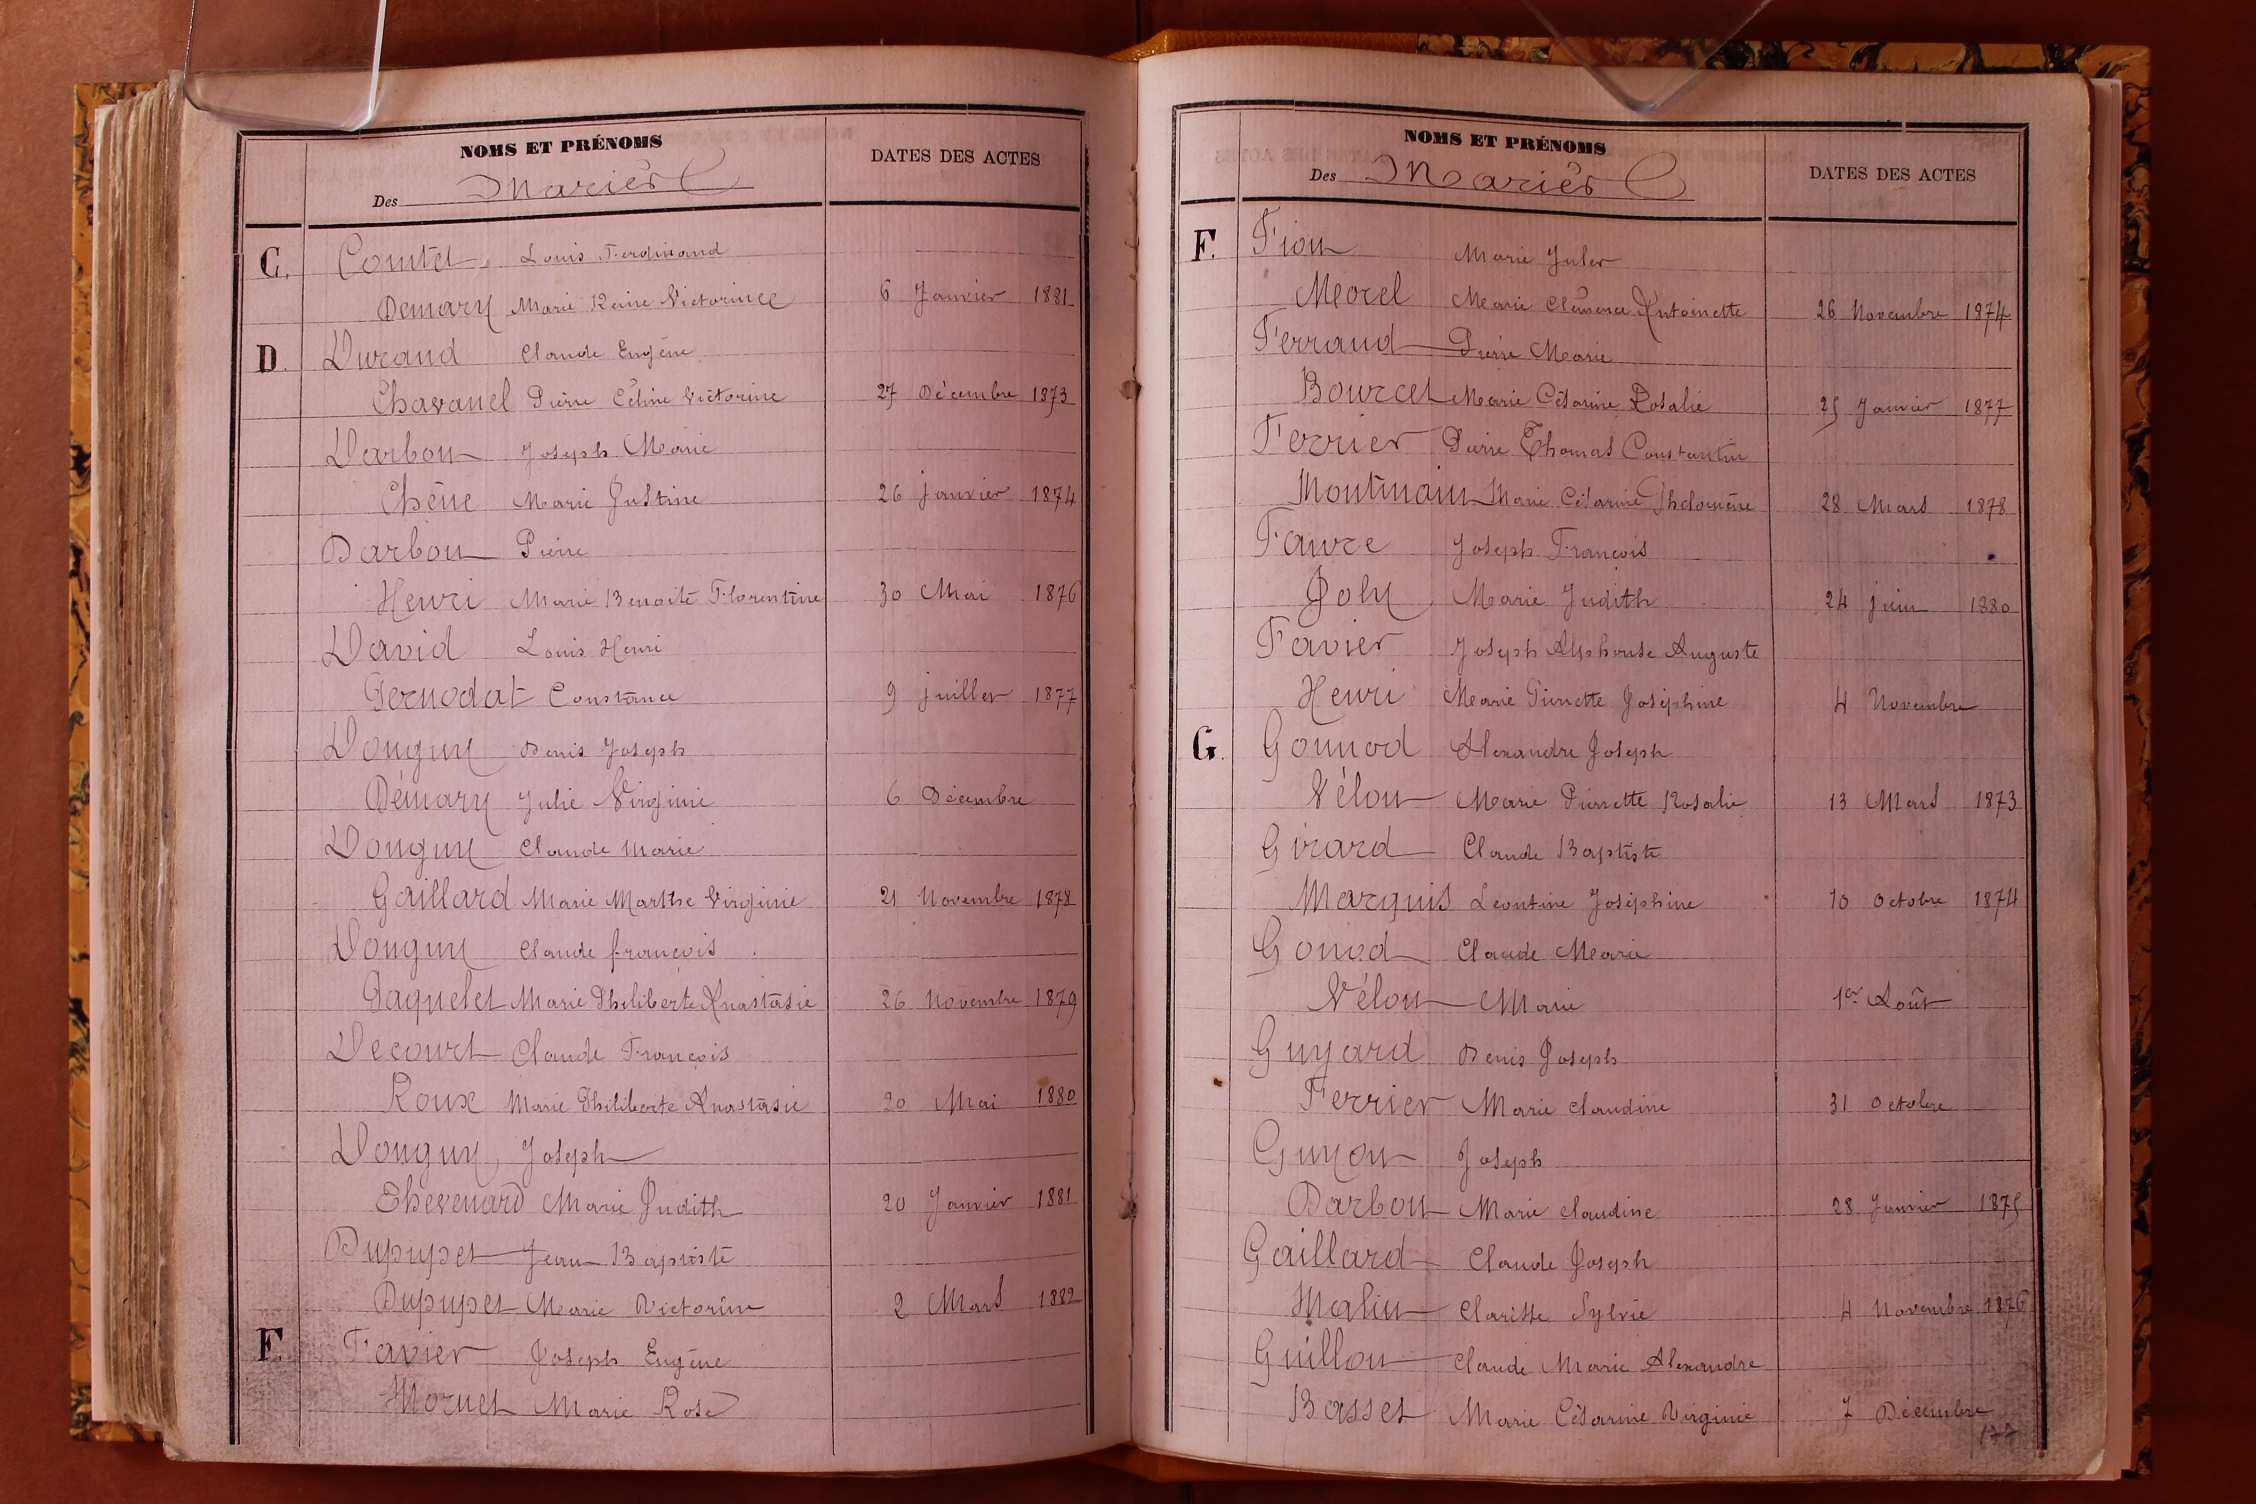 NOMS ET PRÉNOMS
DATES DES ACTES
Des Mariés
C. Comtet Louis Ferdinand
Demary Marie Reine Victorince 6 Janvier 1881
D. Durand Claude Eugène
Chavanel Pierre Céline Victorine 27 Décembre 1873
Darbon Joseph Marie
Chêne Marie Justine 26 janvier 1874
Darbon Pierre
Henri Marie Benoite Florentine 30 Mai 1876
David Louis Henri
Pernodat Constance 9 juillet 1877
Donguy Denis Joseph
Démary Julie Virginie 6 Décembre
Donguy Claude Marie
Gaillard Marie Marthe Virginie 21 Novembre 1878
Donguy Claude françois
Paquelet Marie Philiberte Anastasie 26 Novembre 1879
Decourt Claude François
Roux Marie Philiberte Anastasie 20 Mai 1880
Donguy, Joseph
Thevenard Marie Judith 20 Janvier 1881
Dupupet Jean Baptiste
Dupupet Marie Victorine 2 Mars 1882
F. Favier Joseph Eugène
Mornet Marie Rose
NOMS ET PRÉNOMS
DATES DES ACTES
Des Mariés
F. Fion Marie Jules
Morel Marie Clémence Antoinette 26 Novembre 1874
Ferraud Pierre Marie
Bourcet Marie Césarine Rosalie 25 Janvier 1877
Ferrier Pierre Thomas Constantin
Montmain Marie Césarine Phelomène 28 Mars 1878
Faivre Joseph François
Joly Marie Judith 24 juin 1880
Favier Joseph Alphonse Auguste
Henri Marie Pierrette Joséphine 4 Novembre
G. Gounod Alexandre Joseph
Vélon Marie Pierrette Rosalie 13 Mars 1873
Girard Claude Baptiste
Marquis Léontine Joséphine 10 Octobre 1874
Gonod Claude Marie
Vélon Marie 1er Août
Guyard Denis Joseph
Ferrier Marie Claudine 31 Octobre
Guyon Joseph
Darbon Marie Claudine 28 Janvier 1875
Gaillard Claude Joseph
Malin Clarisse Sylvie 4 Novembre 1876
Guillon Claude Marie Alexandre
Basset Marie Césarine Virginie 7 Décembre
177